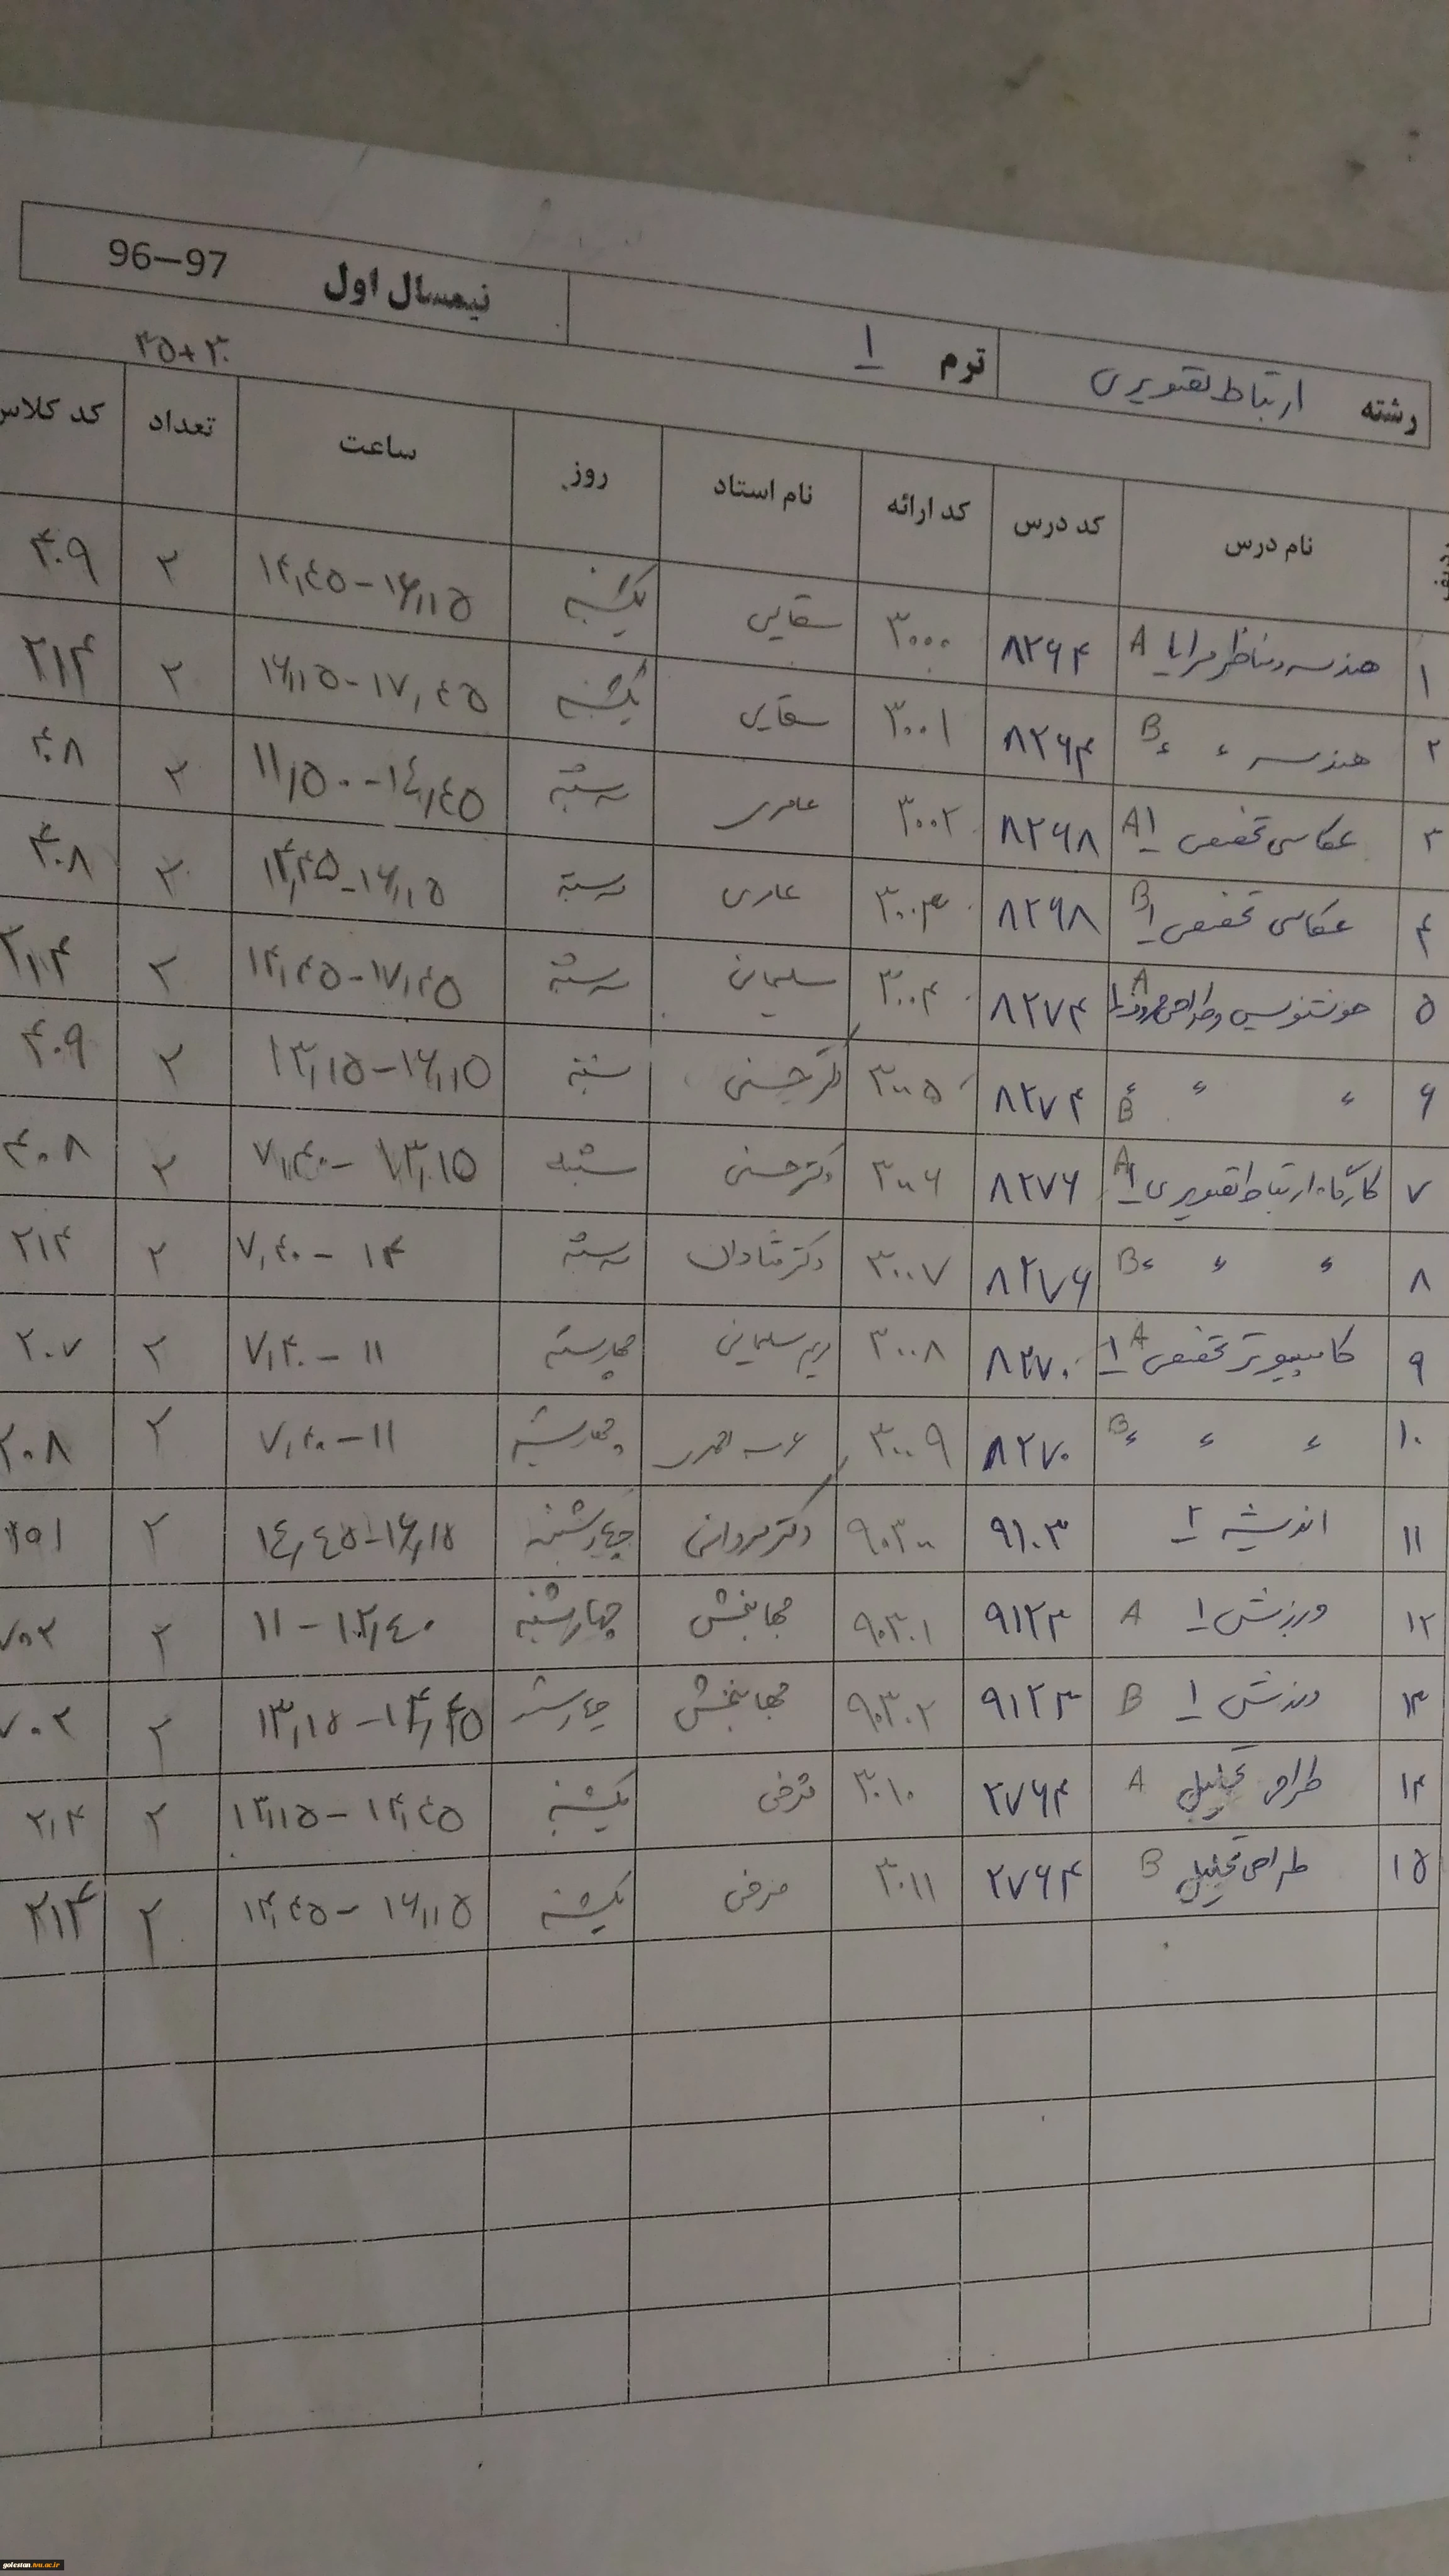 رشته ارتباط تصویری ترم ۱ نیمسال اول 96-97
۳۰+۳۵
نام درس کد درس کد ارائه نام استاد روز ساعت تعداد کد کلاس
۱ هندسه مناظر و مرایا A ۸۲۶۴ ۳۰۰۰ سقایی یکشنبه ۱۴,۴۵-۱۶,۱۵ ۲ ۴۰۹
۲ هندسه ء ء B ۸۲۶۴ ۳۰۰۱ سقایی یکشنبه ۱۶,۱۵-۱۷,۴۵ ۲ ۲۱۴
۳ عکاسی تخصصی ۱ A ۸۲۶۸ ۳۰۰۲ عامری سه شنبه ۱۱,۵۰-۱۴,۴۵ ۲ ۴۰۸
۴ عکاسی تخصصی ۱ B ۸۲۶۸ ۳۰۰۳ عامری سه شنبه ۱۴,۴۵-۱۶,۱۵ ۲ ۴۰۸
۵ خوشنویسی و طراحی حروف ۱ A ۸۲۷۴ ۳۰۰۴ سلیمانی سه شنبه ۱۴,۴۵-۱۷,۴۵ ۲ ۲۱۴
۶ ء ء ء B ۸۲۷۴ ۳۰۰۵ دکتر حسنی شنبه ۱۳,۱۵-۱۶,۱۵ ۲ ۴۰۹
۷ کارگاه ارتباط تصویری ۱ A ۸۲۷۶ ۳۰۰۶ دکتر حسنی شنبه ۷,۴۰-۱۳,۱۵ ۲ ۴۰۸
۸ ء ء ء B ۸۲۷۶ ۳۰۰۷ دکتر شادلان سه شنبه ۷,۴۰-۱۴ ۲ ۲۱۴
۹ کامپیوتر تخصصی ۱ A ۸۲۷۰ ۳۰۰۸ مریم سلیمانی چهارشنبه ۷,۴۰-۱۱ ۲ ۲۰۷
۱۰ ء ء ء B ۸۲۷۰ ۳۰۰۹ چهارشنبه ۷,۴۰-۱۱ ۲ ۲۰۸
۱۱ اندیشه ۲ ۹۱۰۳ ۹۰۳۰۰ دکتر مردانی چهارشنبه ۱۴,۴۵-۱۶,۱۵ ۲
۱۲ ورزش ۱ A ۹۱۲۳ ۹۰۳۰۱ جهانبخش چهارشنبه ۱۱-۱۲,۴۰ ۲ ۷۰۲
۱۳ ورزش ۱ B ۹۱۲۳ ۹۰۳۰۲ جهانبخش چهارشنبه ۱۳,۱۵-۱۴,۴۵ ۲ ۷۰۲
۱۴ طراحی تحلیلی A ۲۷۶۴ ۳۰۱۰ یکشنبه ۱۳,۱۵-۱۴,۴۵ ۲ ۲۱۴
۱۵ طراحی تحلیلی B ۲۷۶۴ ۳۰۱۱ یکشنبه ۱۴,۴۵-۱۶,۱۵ ۲ ۲۱۴
golestan.tvu.ac.ir